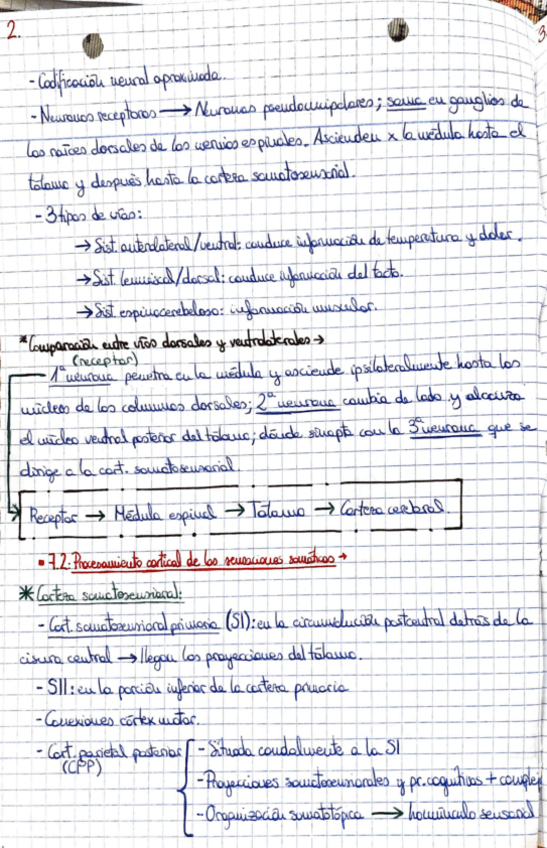 2.
3
- Codificación neural aproximada.
- Neuronas receptoras → Neuronas pseudounipolares; soma en ganglios de
las raíces dorsales de los nervios espinales. Ascienden x la médula hasta el
tálamo y después hasta la corteza somatosensorial.
- 3 tipos de vías:
→ Sist. anterolateral/ventral: conduce información de temperatura y dolor.
→ Sist. lemniscal/dorsal: conduce información del tacto.
→ Sist. espinocerebeloso: información muscular.
*Comparación entre vías dorsales y ventrolaterales →
(receptor)
1ª neurona penetra en la médula y asciende ipsilateralmente hasta los
núcleos de las columnas dorsales; 2ª neurona cambia de lado y alcanza
el núcleo ventral posterior del tálamo; dónde sinapta con la 3ª neurona que se
dirige a la cort. somatosensorial.
Receptor → Médula espinal → Tálamo → Corteza cerebral.
• 7.2. Procesamiento cortical de las sensaciones somáticas →
* Corteza somatosensorial:
- Cort. somatosensorial primaria (SI): en la circunvolución postcentral detrás de la
cisura central → llegan las proyecciones del tálamo.
- SII: en la porción inferior de la corteza primaria
- Conexiones córtex motor.
- Cort. parietal posterior (CPP)
- Situada caudalmente a la SI
- Proyecciones somatosensoriales y pr. cognitivos + complej
- Organización somatotópica → homúnculo sensorial